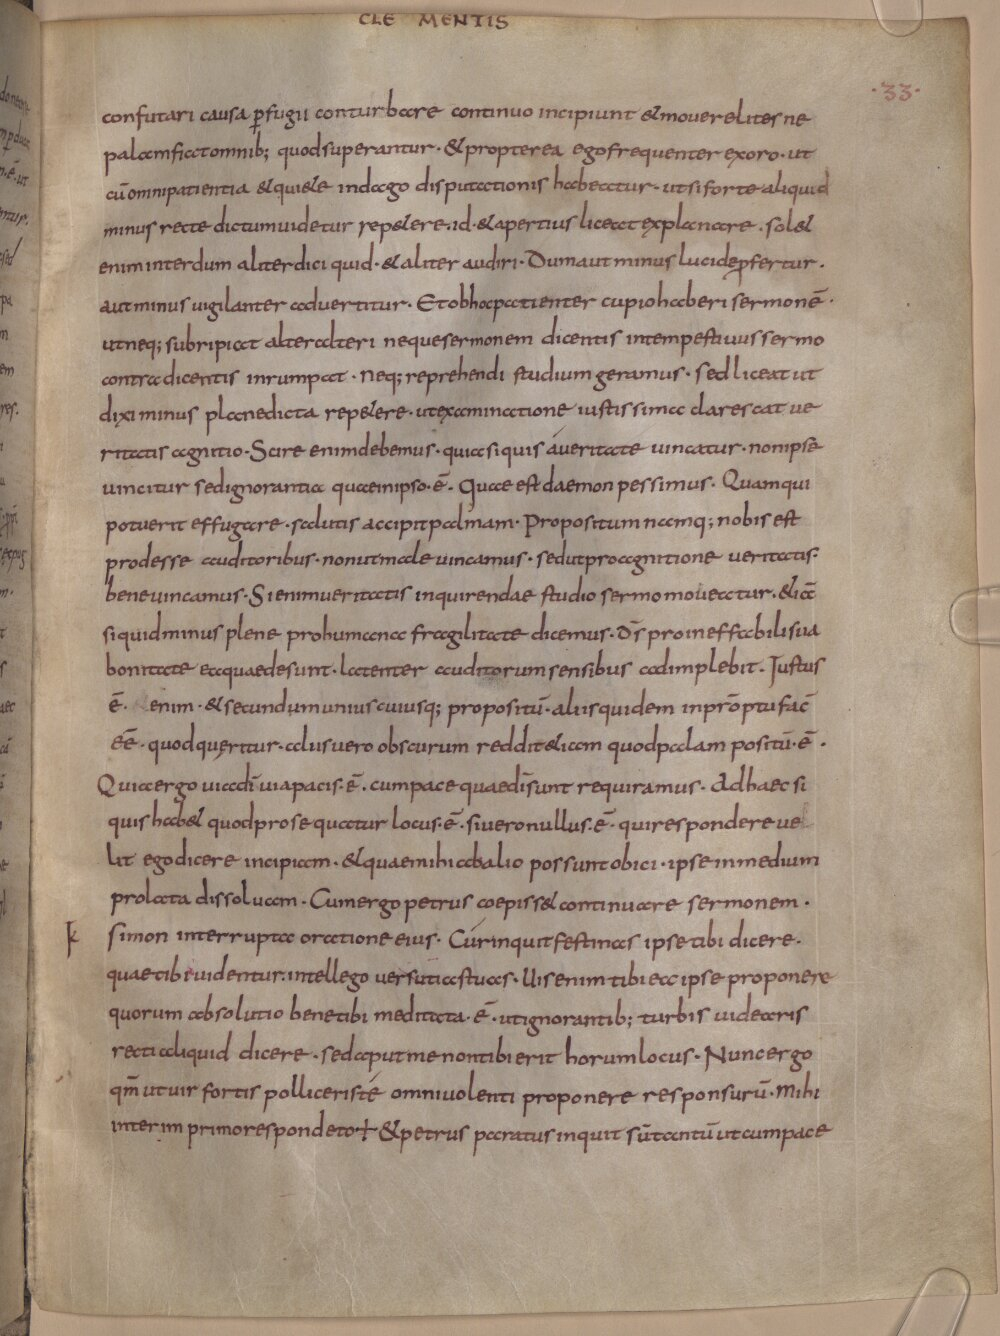 CLEMENTIS
·33·
confutari causa ꝑfugii conturbare continuo incipiunt & mouere lites ne
palam fiat omnib; quod superantur · & propterea ego frequenter exoro · ut
cū omni patientia & qui&e indago disputationis habeatur · ut si forte aliquid
minus recte dictum uidetur rep&ere · id · & apertius liceat explanare · sol&
enim interdum aliter dici quid · & aliter audiri · Dum aut minus lucide ꝑfertur ·
aut minus uigilanter aduertitur · Et ob hoc patienter cupio haberi sermonē ·
ut neq; subripiat alter alteri neque sermonem dicentis intempestiuus sermo
contradicentis inrumpat · Neq; reprehendi studium geramus · sed liceat ut
dixi minus plane dicta rep&ere · ut examinatione iustissima clarescat ue
ritatis agnitio · Scire enim debemus · quia si quis a ueritate uincatur · non ipse
uincitur sed ignorantia quae in ipso · ē · Quae est daemon pessimus · Quam qui
potuerit effugare · salutis accipit palmam · Propositum namq; nobis est
prodesse auditoribus · non ut male uincamus · sed ut pro agnitione ueritatis ·
bene uincamus · Si enim ueritatis inquirendae studio sermo moueatur · &iā
si quid minus plene pro humana fragilitate dicemus · dˉs pro ineffabili sua
bonitate ea quae desunt · latenter auditorum sensibus adimplebit · Iustus
ē · enim · & secundum uniuscuiusq; propositū · aliis quidem in prōptu facˉ
eē · quod quęritur · alus uero obscurum reddit &iam quod palam positū · ē ·
Quia ergo uia dˉi uia pacis · ē · cum pace quae dˉi sunt requiramus · Ad haec si
quis hab& quod pro sequatur locus · ē · si uero nullus · ē · qui respondere uel
lit ego dicere incipiam · & quae mihi ab alio possunt obici · ipse in medium
prolata dissoluam · Cum ergo petrus coepiss& continuare sermonem ·
k simon interrupta oratione eius · Cur inquit festinas ipse tibi dicere ·
quae tibi uidentur · intellego uersutias tuas · Uis enim tibi ea ipse proponere
quorum absolutio bene tibi meditata · ē · ut ignorantib; turbis uidearis
recti aliquid dicere · sed aput me non tibi erit horum locus · Nunc ergo
qm̄ ut uir fortis polliceris te omni uolenti proponere responsurū · Mihi
interim primo respondeto + & petrus paratus inquit sū tantū ut cum pace